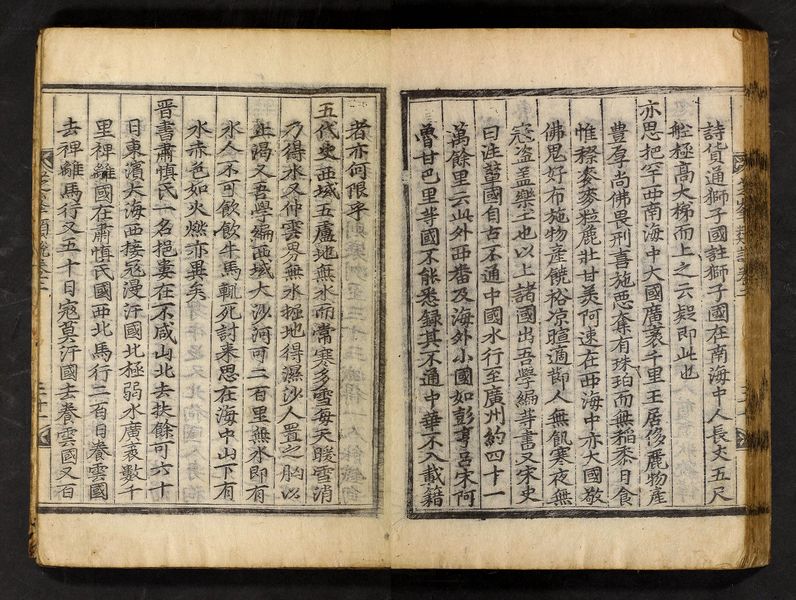 詩貨通獅子國註獅子國在南海中人長丈五尺
舩極高大梯而上之云疑即此也
亦思把罕西南海中大國廣袤千里王居侈麗物産
豊厚尚佛畏刑喜施惡奪有珠珀而無稻黍日食
惟穄麥麥粒麁壯甘美阿速在西海中亦大國敬
佛鬼好布施物産饒裕凉暄適節人無飢寒夜無
冦盗盖樂土也以上諸國出吾學編等書又宋史
曰注輦國自古不通中國水行至廣州約四十一
萬餘里云此外西番及海外小國如彭亨呂宋阿
魯甘巴里等國不能悉録其不通中華不入載籍
者亦何限乎
五代史西域五盧地無水而常寒多雪每天暖雪消
乃得水又仲雲界無水掘地得濕沙人置之胸以
止渴又吾學編西域大沙河可二百里無水即有
水人不可飲飲牛馬輒死討来思在海中山下有
水赤色如火燃亦異矣
晋書肅慎氏一名挹婁在不咸山北去扶餘可六十
日東濱大海西接冦漫汗國北極弱水廣袤數千
里裨離國在肅慎氏國西北馬行二百日養雲國
去裨離馬行又五十日冦莫汗國去養雲國又百
芝峯類說卷二